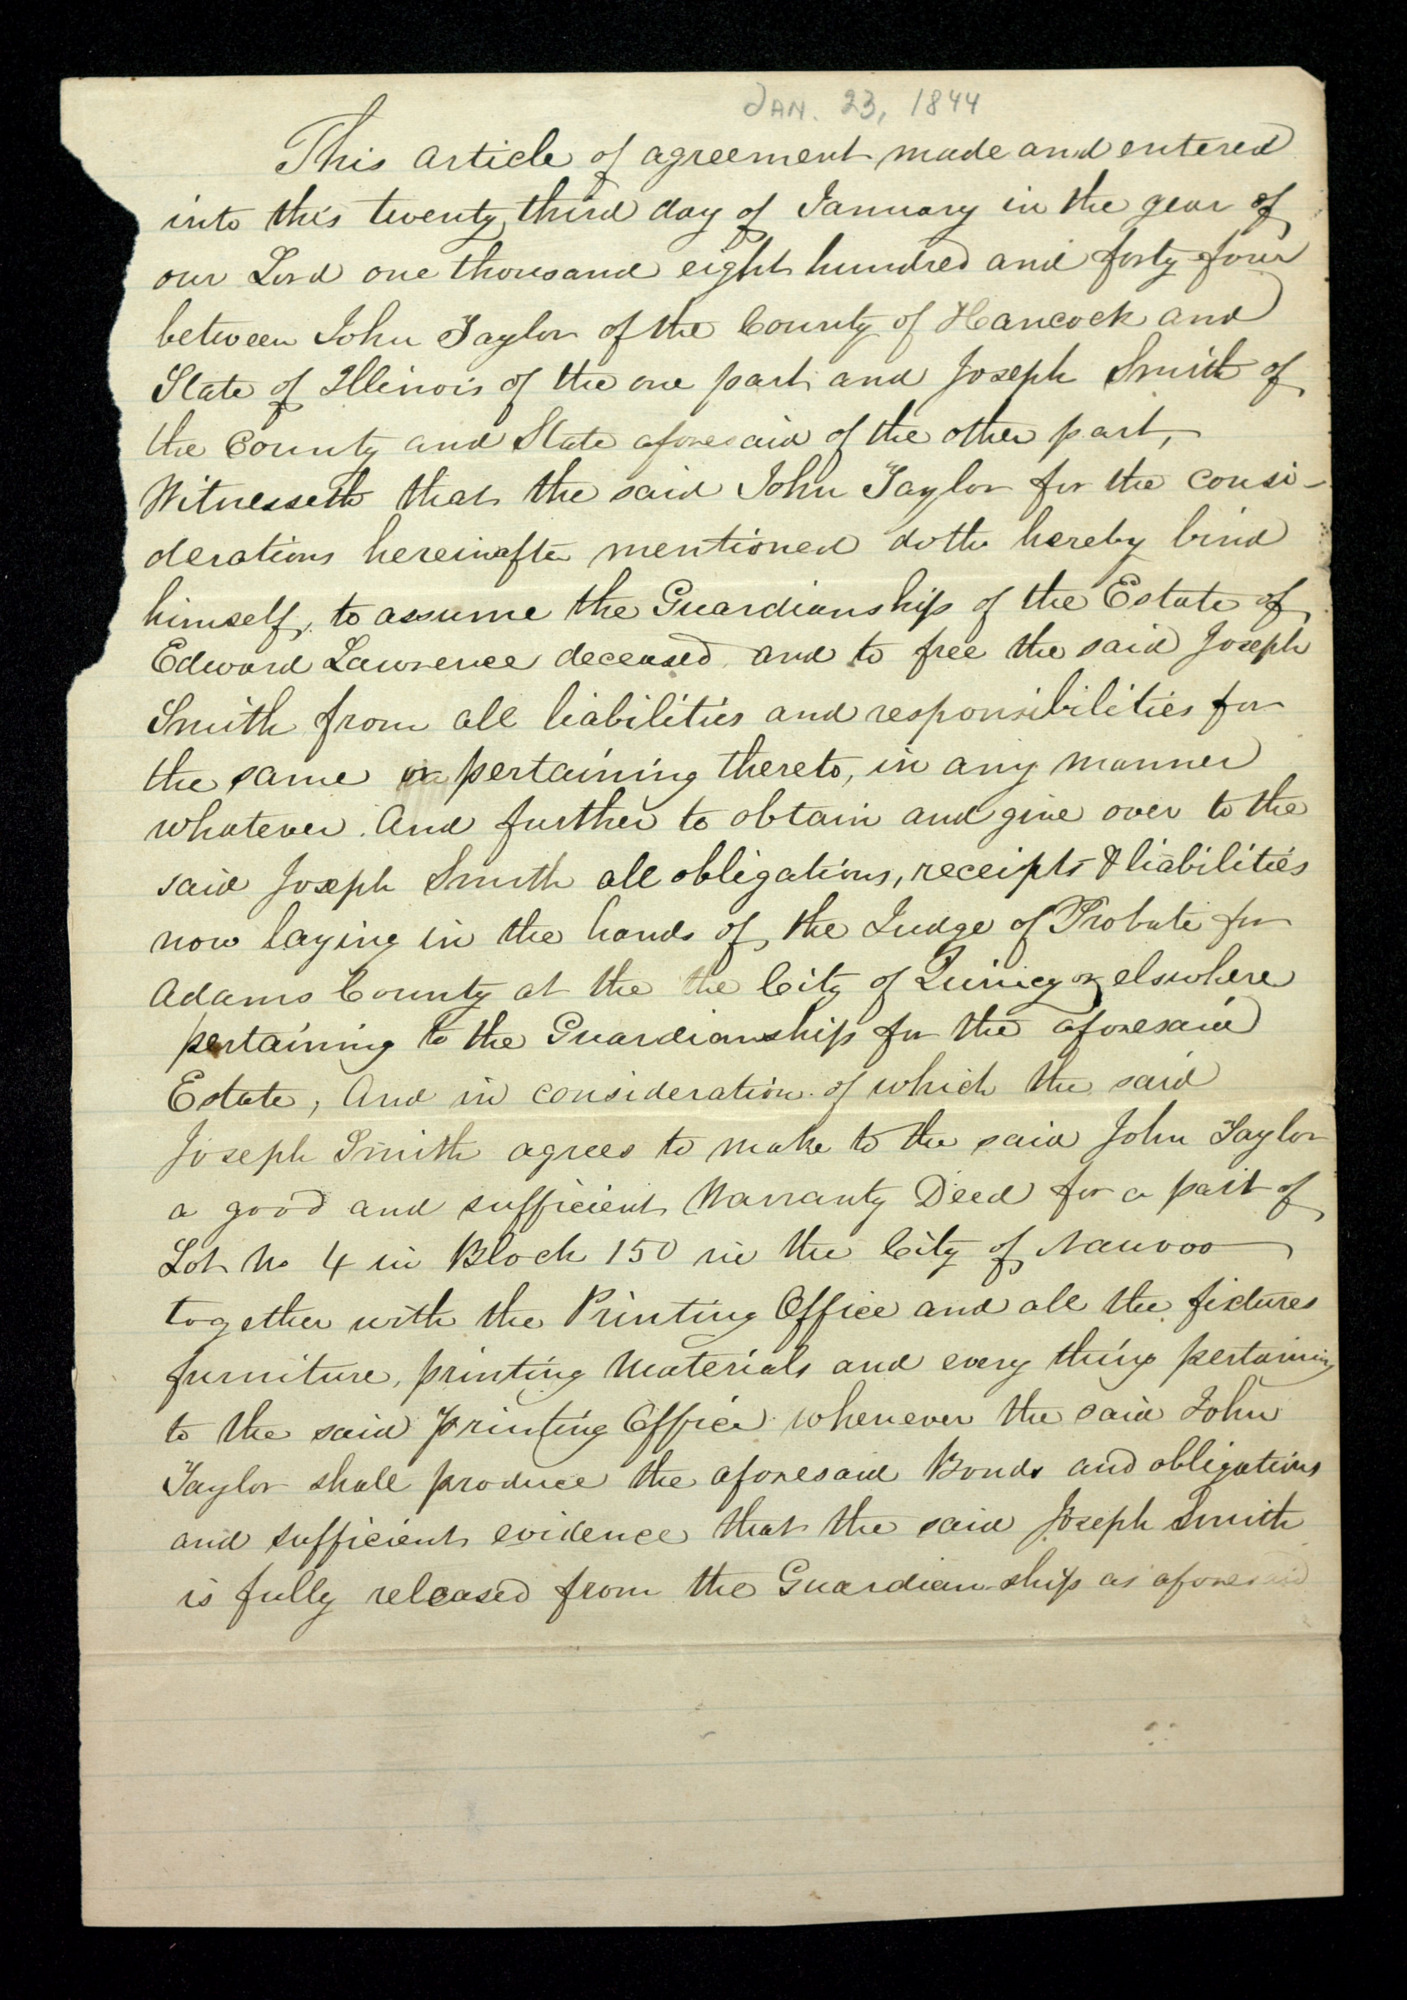 JAN. 23, 1844
This article of agreement made and entered
into this twenty third day of January in the year of
our Lord one thousand eight hundred and forty four
between John Taylor of the County of Hancock and
State of Illinois of the one part and Joseph Smith of
the County and State aforesaid of the other part,
Witnesseth that the said John Taylor for the consi-
derations hereinafter mentioned doth hereby bind
himself, to assume the Guardianship of the Estate of
Edward Lawrence deceased and to free the said Joseph
Smith from all liabilities and responsibilities for
the same or pertaining thereto, in any manner
whatever. And further to obtain and give over to the
said Joseph Smith all obligations, receipts & liabilities
now laying in the hands of the Judge of Probate for
Adams County at the the City of Quincy or elswhere
pertaining to the Guardianship for the aforesaid
Estate, And in consideration of which the said
Joseph Smith agrees to make to the said John Taylor
a good and sufficient Warranty Deed for a part of
Lot No 4 in Block 150 in the City of Nauvoo
together with the Printing Office and all the fixtures
furniture, printing materials and every thing pertaining
to the said Printing Office whenever the said John
Taylor shall produce the aforesaid Bonds and obligations
and sufficient evidence that the said Joseph Smith
is fully released from the Guardian-ship as aforesaid